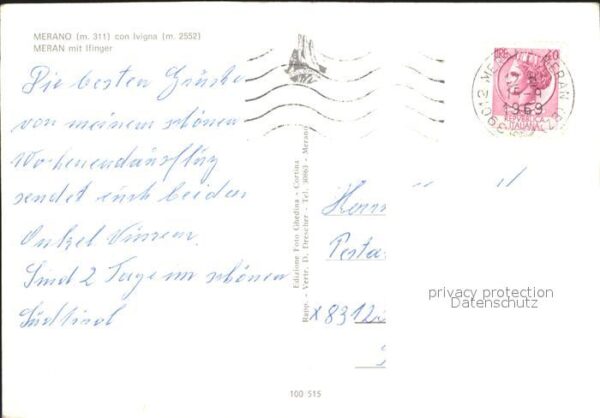 MERANO (m. 311) con Ivigna (m. 2552)
MERAN mit Ifinger
Die besten Grüße
von meinem schönen
Wochenendausflug
sendet euch beiden
Onkel
Sind 2 Tage im schönen
Südtirol
Edizione Foto Ghedina - Cortina
Rapp. - Vertr. D. Drescher - Tel. 30863 - Merano
MERAN
39012
1969
REPUBBLICA
ITALIANA
Herrn
Pesta
X8312
privacy protection
Datenschutz
100 515